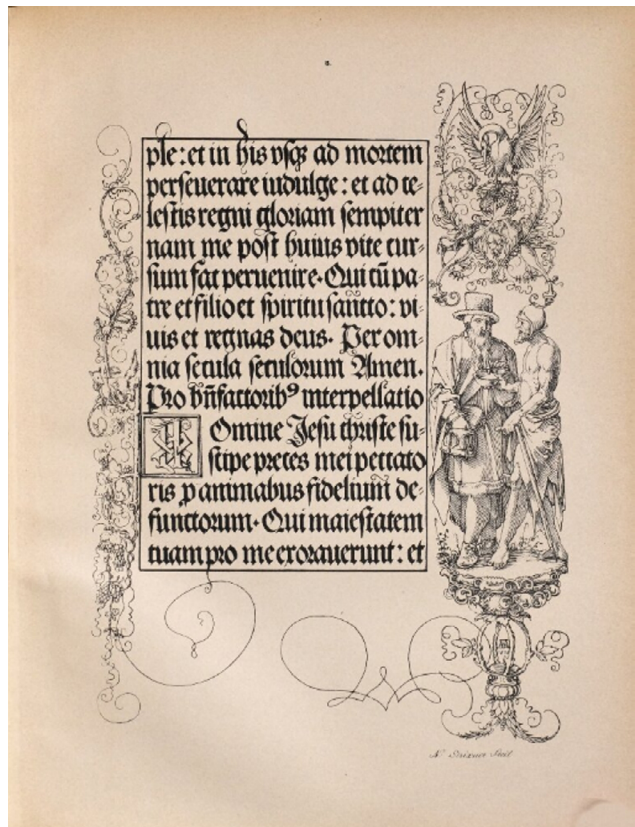 ple: et in his vsqȝ ad mortem
perseuerare indulge: et ad ce-
lestis regni gloriam sempiter
nam me post huius vite cur-
sum fac peruenire. Qui cū pa-
tre et filio et spiritu sancto: vi-
uis et regnas deus. Per om-
nia secula seculorum Amen.
Pro bn̄factoribꝰ interpellatio
Domine Jesu christe su-
scipe preces mei peccato
ris ꝓ animabus fidelium de-
functorum. Qui maiestatem
tuam pro me exorauerunt: et
N Strixner fecit